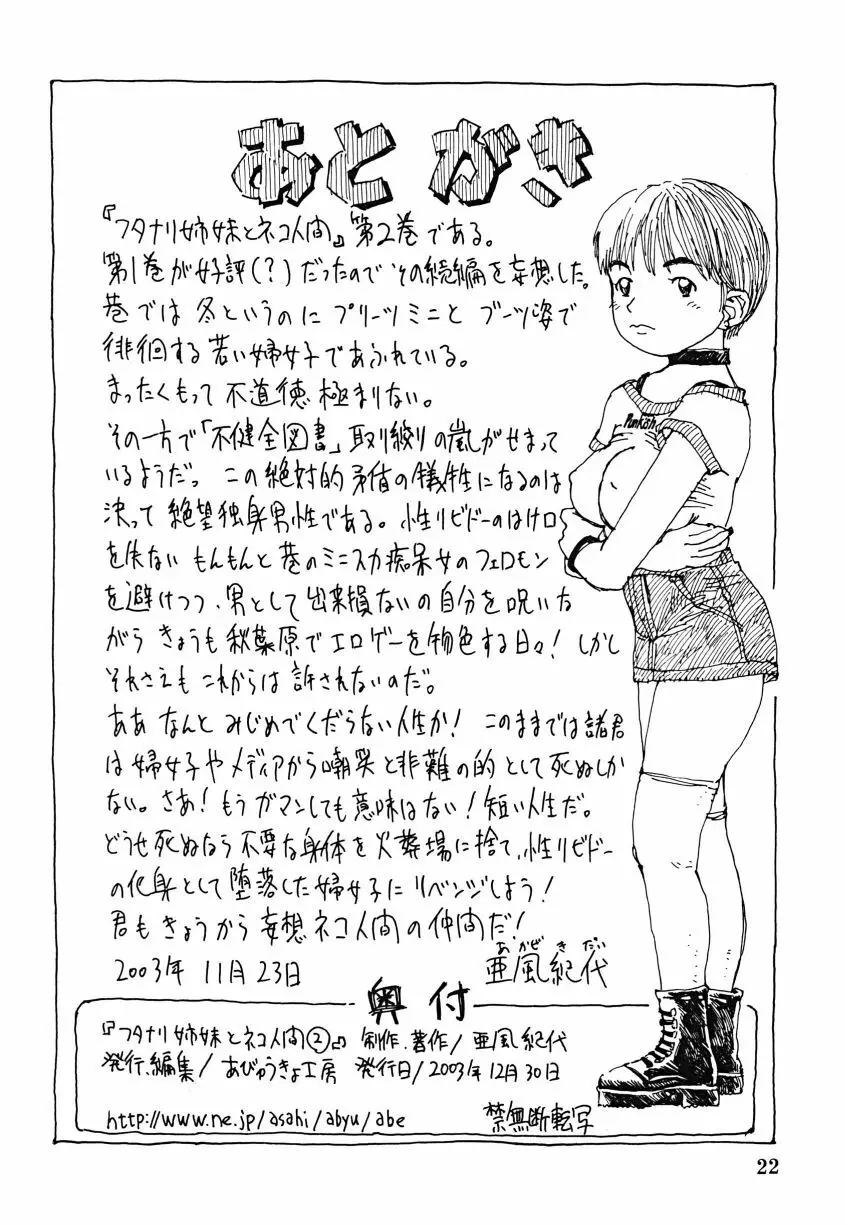 あとがき
『フタナリ姉妹とネコ人間』第2巻である。
第1巻が好評(?)だったのでその続編を妄想した。
巷では冬というのにプリーツミニとブーツ姿で
徘徊する若い婦女子であふれている。
まったくもって不道徳極まりない。
その一方で「不健全図書」取り絞りの嵐がせまって
いるようだ。この絶対的矛盾の犠牲になるのは
決って絶望独身男性である。性リビドーのはけ口
を失ない もんもんと巷のミニスカ痴呆女のフェロモン
を避けつつ、男として出来損ないの自分を呪いな
がら きょうも秋葉原でエロゲーを物色する日々! しかし
それさえもこれからは許されないのだ。
ああ なんと みじめでくだらない人生か! このままでは諸君
は婦女子やメディアから嘲笑と非難の的として死ぬしか
ない。さあ!もうガマンしても意味はない!短い人生だ。
どうせ死ぬなら不要な身体を火葬場に捨て、性リビドー
の化身として堕落した婦女子にリベンジしよう!
君もきょうから妄想ネコ人間の仲間だ!
あかぜきだい
2003年 11月23日 亜風紀代
Punkish
奥付
『フタナリ姉妹とネコ人間②』 制作、著作/亜風紀代
発行、編集/あびゅうきょ工房 発行日/2003年12月30日
http://www.ne.jp/asahi/abyu/abe 禁無断転写
22